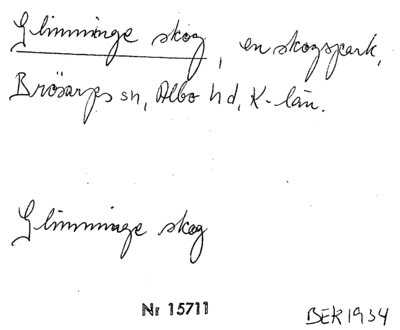 Glimminge skog, en skogspark,
Brösarps sn, Albo hd, K-län.
Glimminge skog
Nr 15711
BEK 1934